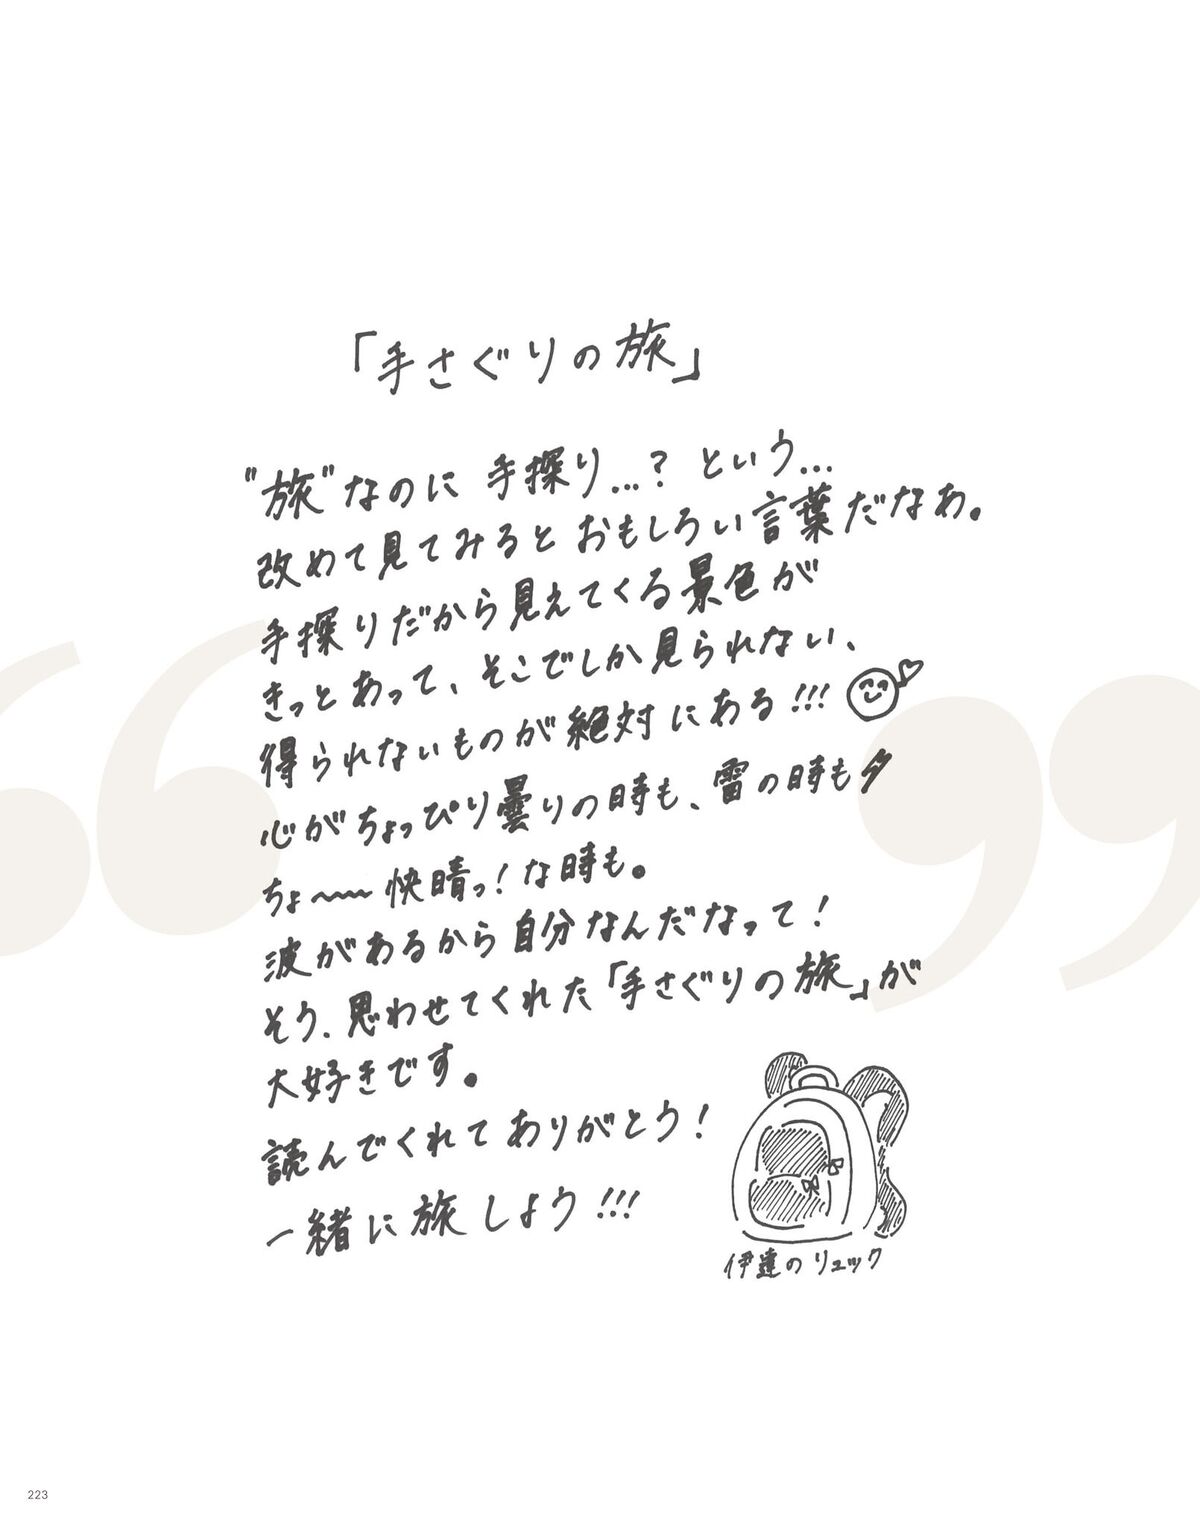 「手さぐりの旅」
"旅"なのに 手探り...? という...
改めて見てみると おもしろい言葉だなあ。
手探りだから見えてくる景色が
きっとあって、そこでしか見られない、
得られないものが絶対にある!!!
心がちょっぴり曇りの時も、雷の時も
ちょ〜〜快晴っ!な時も。
波があるから自分なんだなって!
そう、思わせてくれた「手さぐりの旅」が
大好きです。
読んでくれてありがとう!
一緒に旅しよう!!!
伊達のリュック
223